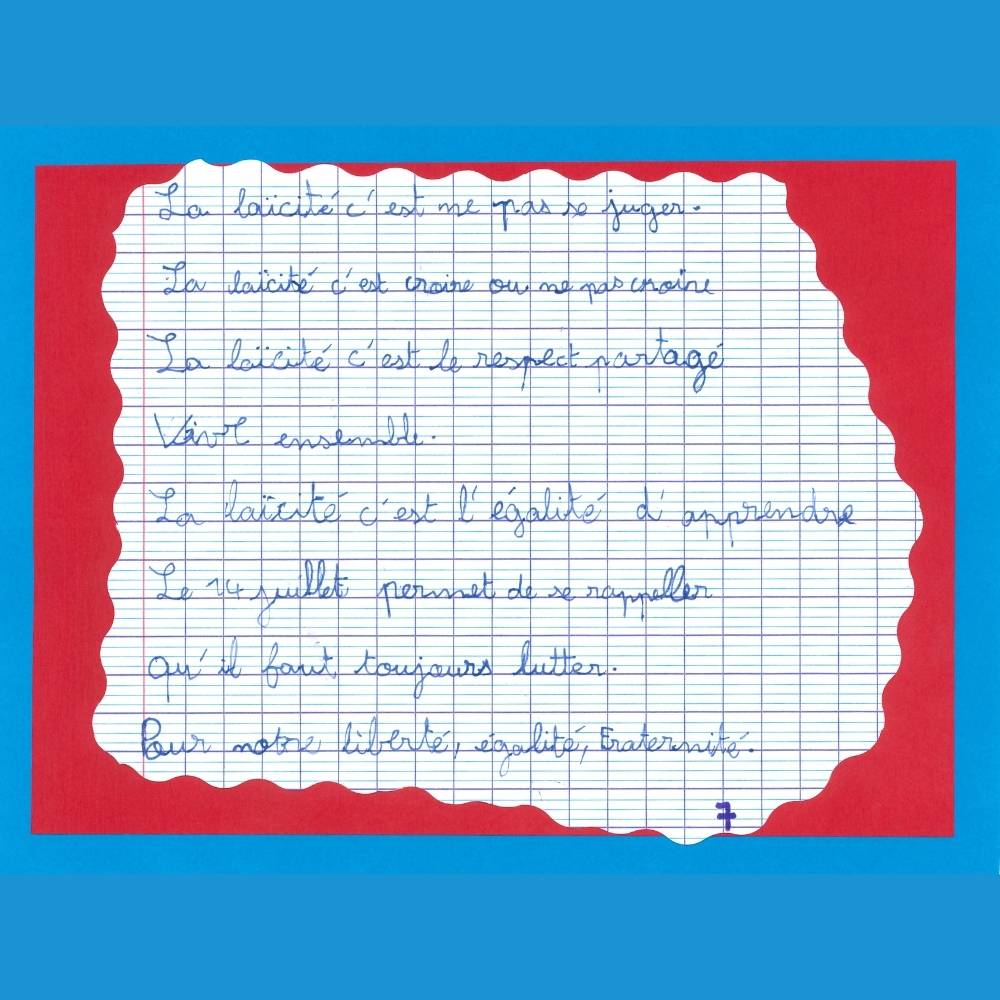 La laïcité c'est ne pas se juger.
La laïcité c'est croire ou ne pas croire
La laïcité c'est le respect partagé
Vivre ensemble.
La laïcité c'est l'égalité d'apprendre
Le 14 juillet permet de se rappeller
qu'il faut toujours lutter.
Pour notre liberté, égalité, Fraternité.
7